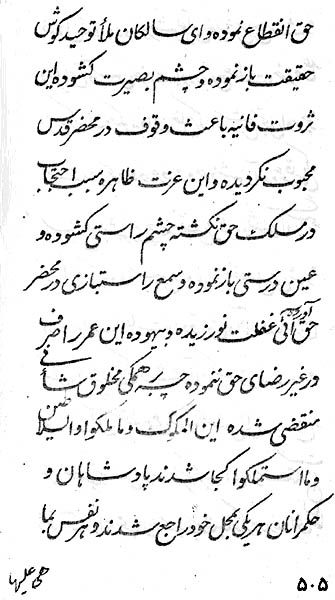 حق انقطاع نموده وای سالکان ملأ توحید گوش
حقیقت باز نموده و چشم بصیرت کشوده این
ثروت فانیه باعث وقوف در محضر قدس
محبوب نگردیده و این عزت ظاهره سبب احتجاب
در مسلک حق نگشته چشم راستی کشوده و
عین درستی باز نموده و سمع راستبازی در محضر
حق آورده آنی غفلت نورزیده و بیهوده این عمر را صرف
در غیر رضای حق ننموده چه که همگی مخلوق فانی
منقضی شده این الملوک وما ملکوا و السلاطین
وما استملکوا کجا شدند پادشاهان و
حکمرانان هر یکی بمحل خود راجع شدند و هر نفس بما
هی علیها
۵۰۵